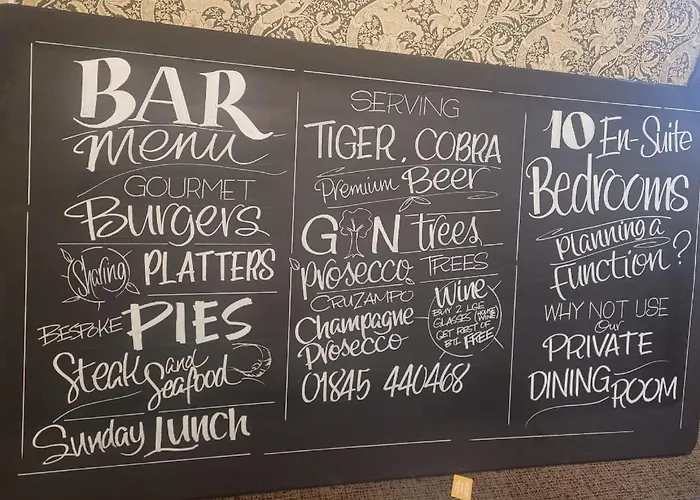 BAR
Menu
GOURMET
Burgers
Sharing PLATTERS
BESPOKE PIES
Steak and
Seafood
Sunday Lunch
SERVING
TIGER, COBRA
Premium Beer
GIN trees
Prosecco TREES
CRUZAMPO
Champagne
Prosecco
Wine
BUY 2 LGE
GLASSES (HOUSE WINE)
GET REST OF
BTL FREE
01845 440468
10 En-Suite
Bedrooms
Planning a
Function?
WHY NOT USE
Our
PRIVATE
DINING ROOM